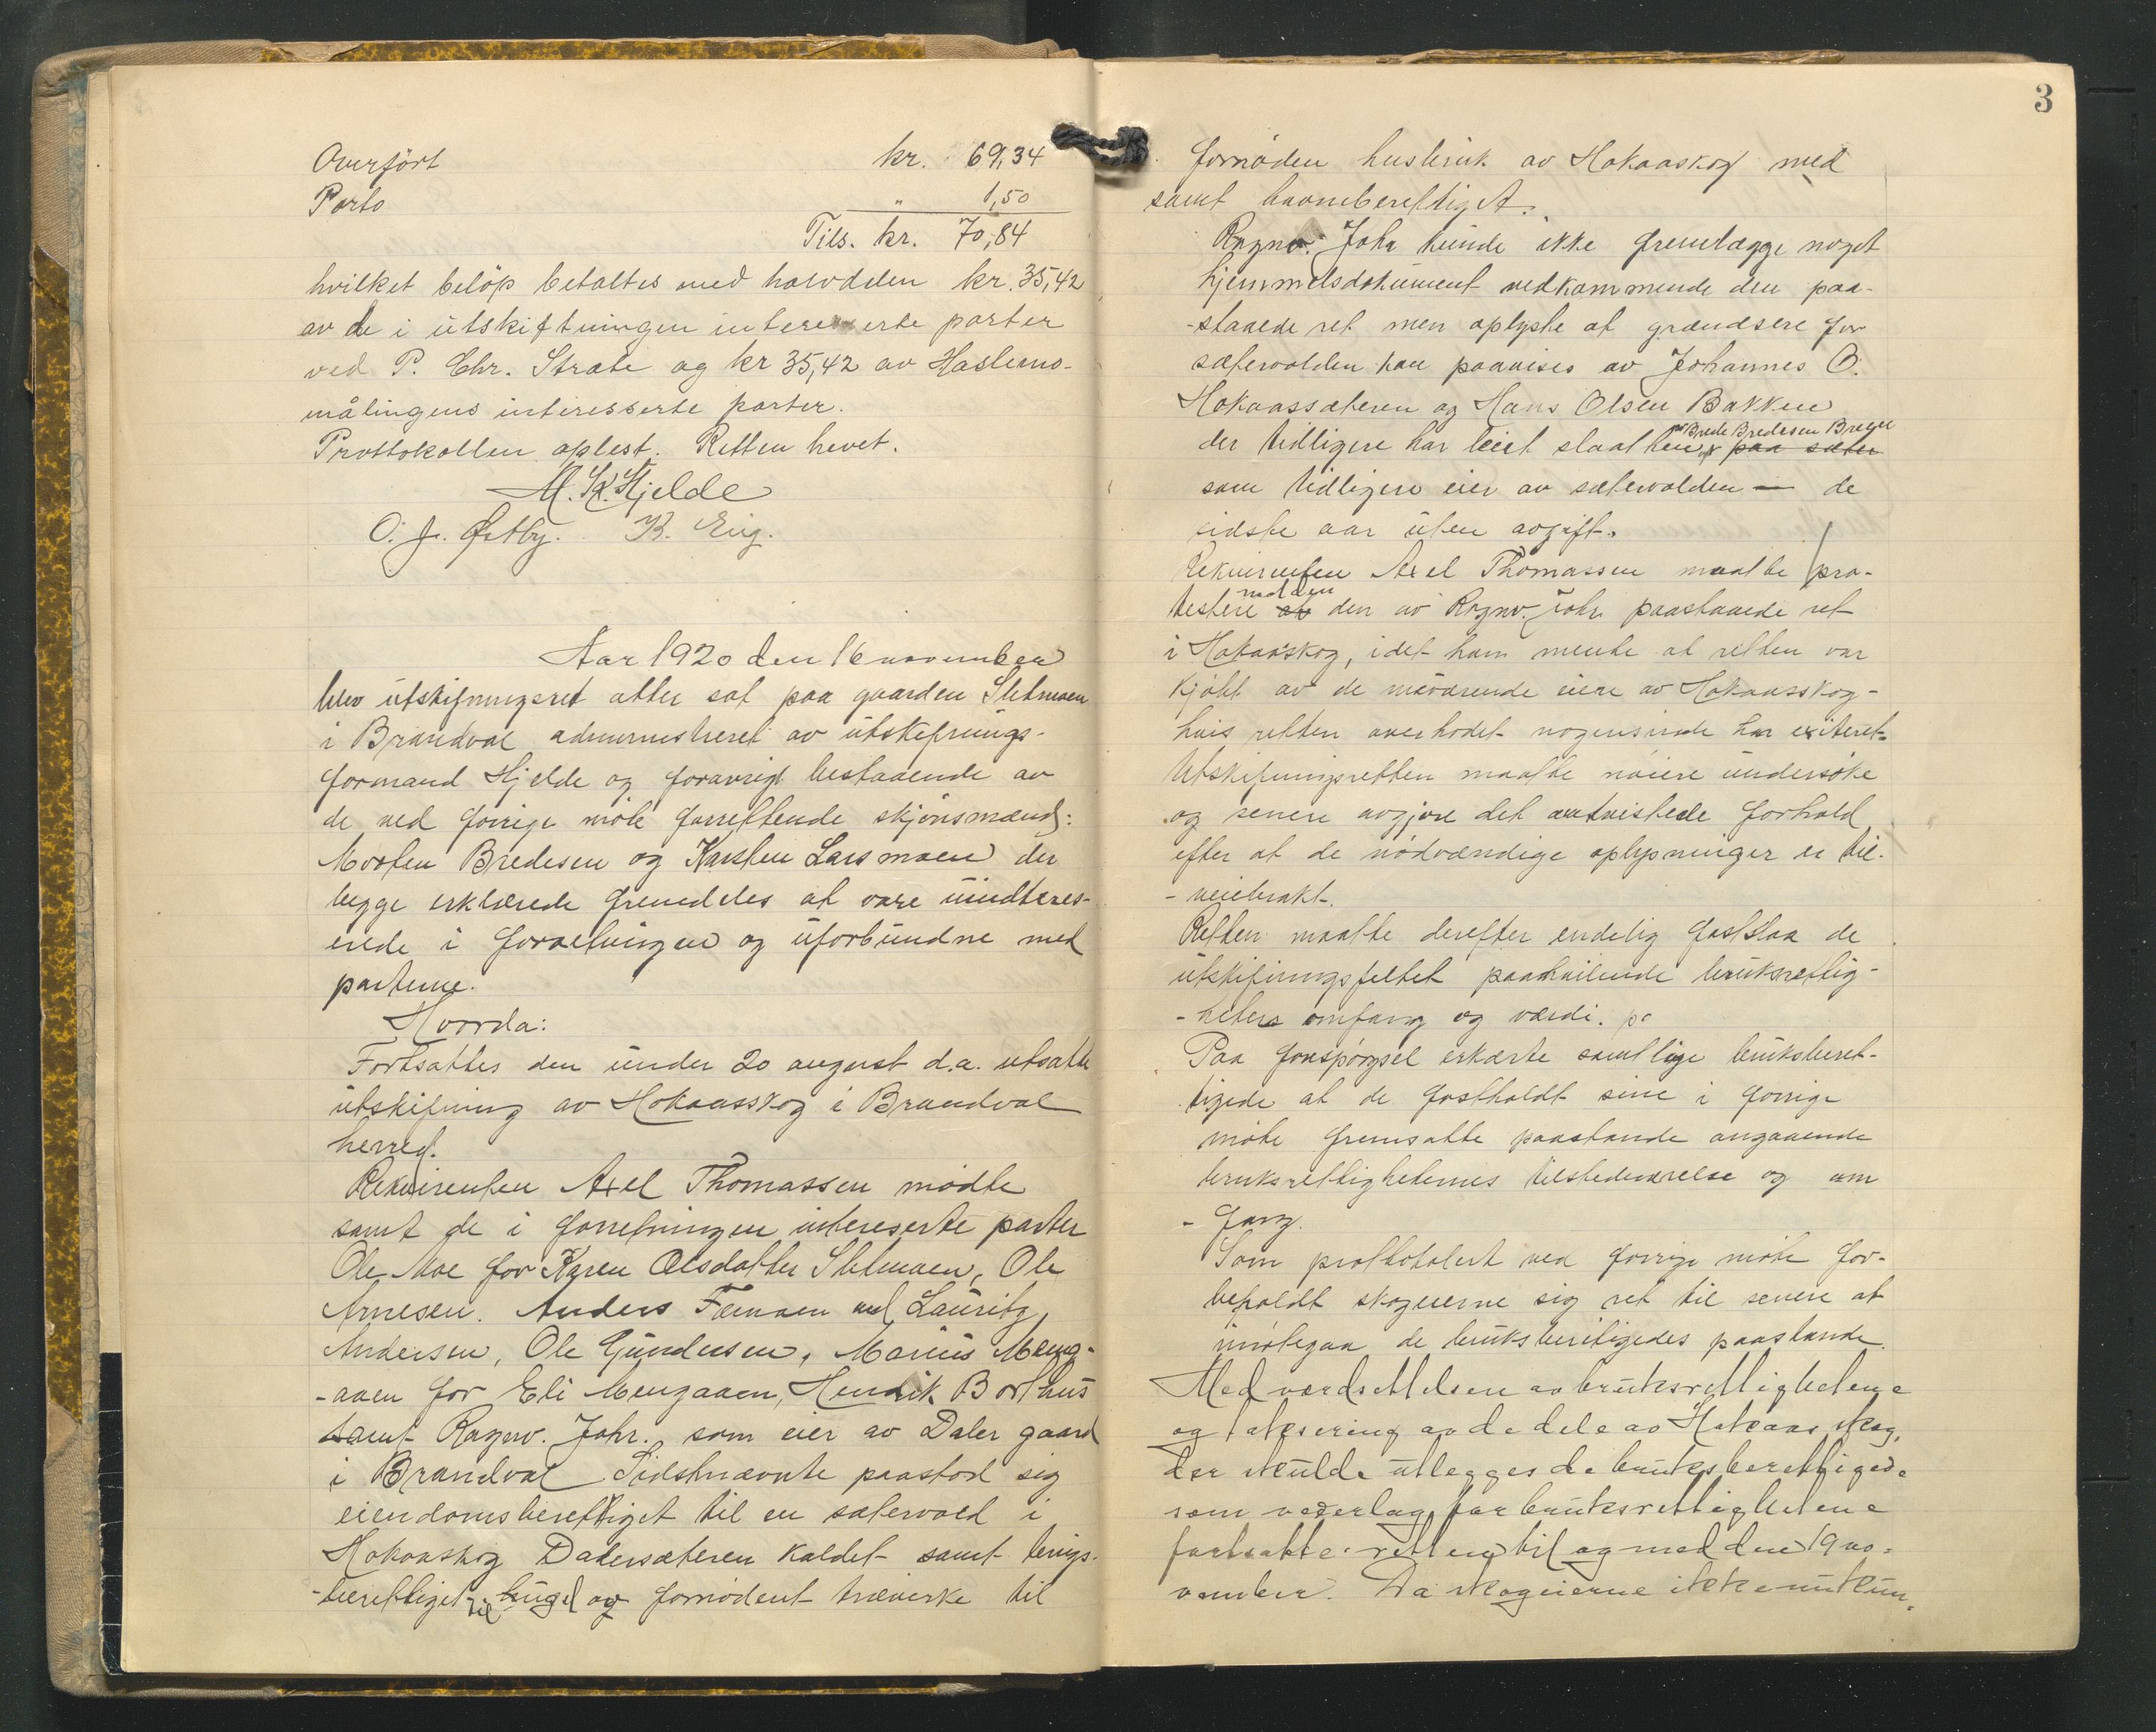 Overført kr. 69,34
Porto " 1,50
Tils. kr. 70,84
hvilket beløp betaltes med halvdelen kr. 35,42
av de i utskiftningen interesserte parter
ved P. Chr. Strate og kr 35,42 av Haslemo-
målingens interesserte parter.
Prottokollen oplest. Retten hevet.
M. K. Hjelde
O. J. Østby. K. Eig.
Aar 1920 den 16 november
blev utskifningsret atter sat paa gaarden Sletmoen
i Brandval administreret av utskifnings-
formand Hjelde og forøvrigt bestaaende av
de ved forrige møte forrettende skjønsmænd:
Morten Bredesen og Karsten Larsmoen der
begge erklærede fremdeles at være uindteres-
erede i forretningen og uforbundne med
parterne.
Hvorda:
Fortsattes den under 20 august d.a. utsatte
utskifning av Hokaasskog i Brandval
herred.
Rekvirenten Axel Thomassen mødte
samt de i forretningen intereserte parter
Ole Moe for Karen Olsdatter Sletmoen, Ole
Arnesen. Anders Fæmoen ved Lauritz
Andersen, Ole Gundersen, Marius Meng-
-aaen for Eli Mengaaen, Henrik Borthus
samt Ragnv. Johr. som eier av Daler gaard
i Brandval Sidstnævnte paastod sig
eiendomsberettiget til en sætervold i
Hokaaskog Dalersæteren kaldet samt brugs-
-berettiget til hugst og fornødent trævirke til
3
fornøden husbruk av Hokaaskog med
samt havneberettiget.
Ragnv. Johr kunde ikke fremlægge noget
hjemmelsdokument vedkommende den paa-
-staaede ret men oplyste at grændsene for
sætervolden kan paavises av Johannes O.
Hokaassæteren og Hans Olsen Bakken
der tidligere har leiet slaatten av Brede Bredesen Breen paa sæter
som tidligere eier av sætervolden — de
sidste aar uten avgift.
Rekvirenten Axel Thomassen maatte pro-
testere mot den at den av Ragnv. Johr. paastaaede ret
i Hokaaskog, idet han mente at retten var
kjøbt av de nuværende eiere av Hokaasskog -
hvis retten overhodet nogensinde har exiteret.
Utskifningsretten maatte nøiere undersøke
og senere avgjøre det omtvistede forhold
efter at de nødvændige oplysninger er til-
- veiebrakt.
Retten maatte derefter endelig fastslaa de
utskifningsfeltet paahvilende bruksrettig-
- heters omfang og værdi. pa
Paa forespørgsel erkærte samtlige bruksberet-
tigede at de fastholdt sine i forrige
møte fremsatte paastande angaaende
bruksrettighetenes tilstedeværelse og om
- fang.
Som prottokolert ved forrige møte for-
beholdt skogeierne sig ret til senere at
imøtegaa de bruksberitigedes paastande.
Med værdsettelsen av bruksrettighetene
og taksering av de dele av Hokaasskog,
der skulde utlegges de bruksberettigede
som vederlag for bruksrettighetene
fortsatte retten til og med den 19 no-
vember. Da skogeierne ikke